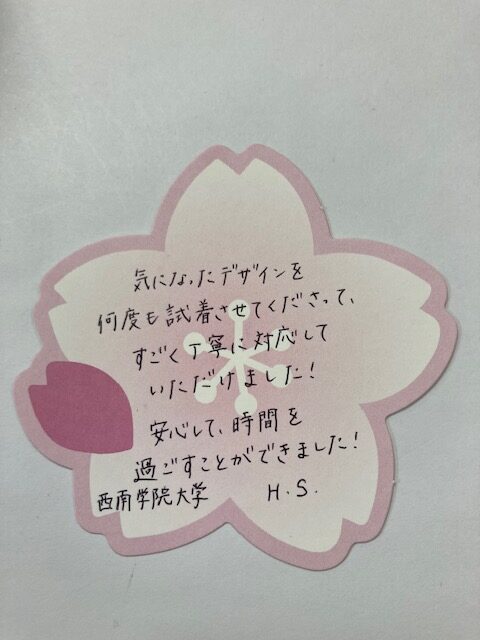 気になったデザインを
何度も試着させてくださって、
すごく丁寧に対応して
いただけました!
安心して、時間を
過ごすことができました!
西南学院大学 H.S.